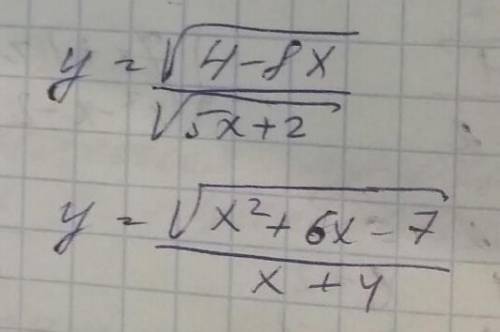 y = √(4-8x) / √(5x+2)
y = √(x²+6x-7) / (x+4)